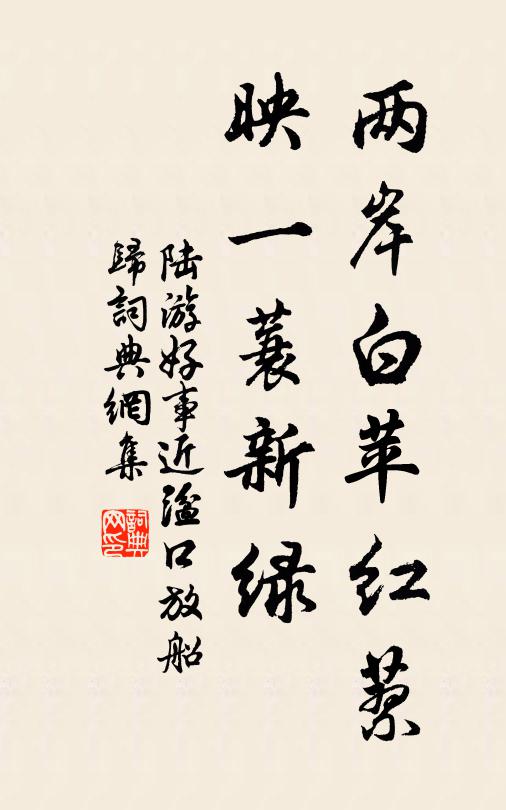 两岸白苹红蓼
映一蓑新绿
陆游好事近湓口放船
歸詞典網集
詞典
网印